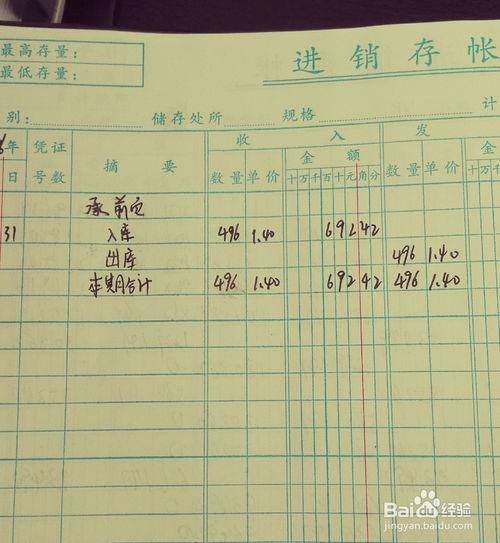 最高存量：
最低存量：
进销存帐
别： 储存处所 规格 计
年 凭证 摘要 收入 发
日 号数 数量 单价 金额 数量 单价 金
十万千百十元角分 十万千
承前页
31 入库 496 1.40 692 42
出库 496 1.40
本期合计 496 1.40 692 42 496 1.40
Baidu 经验
jingyan.baidu.com